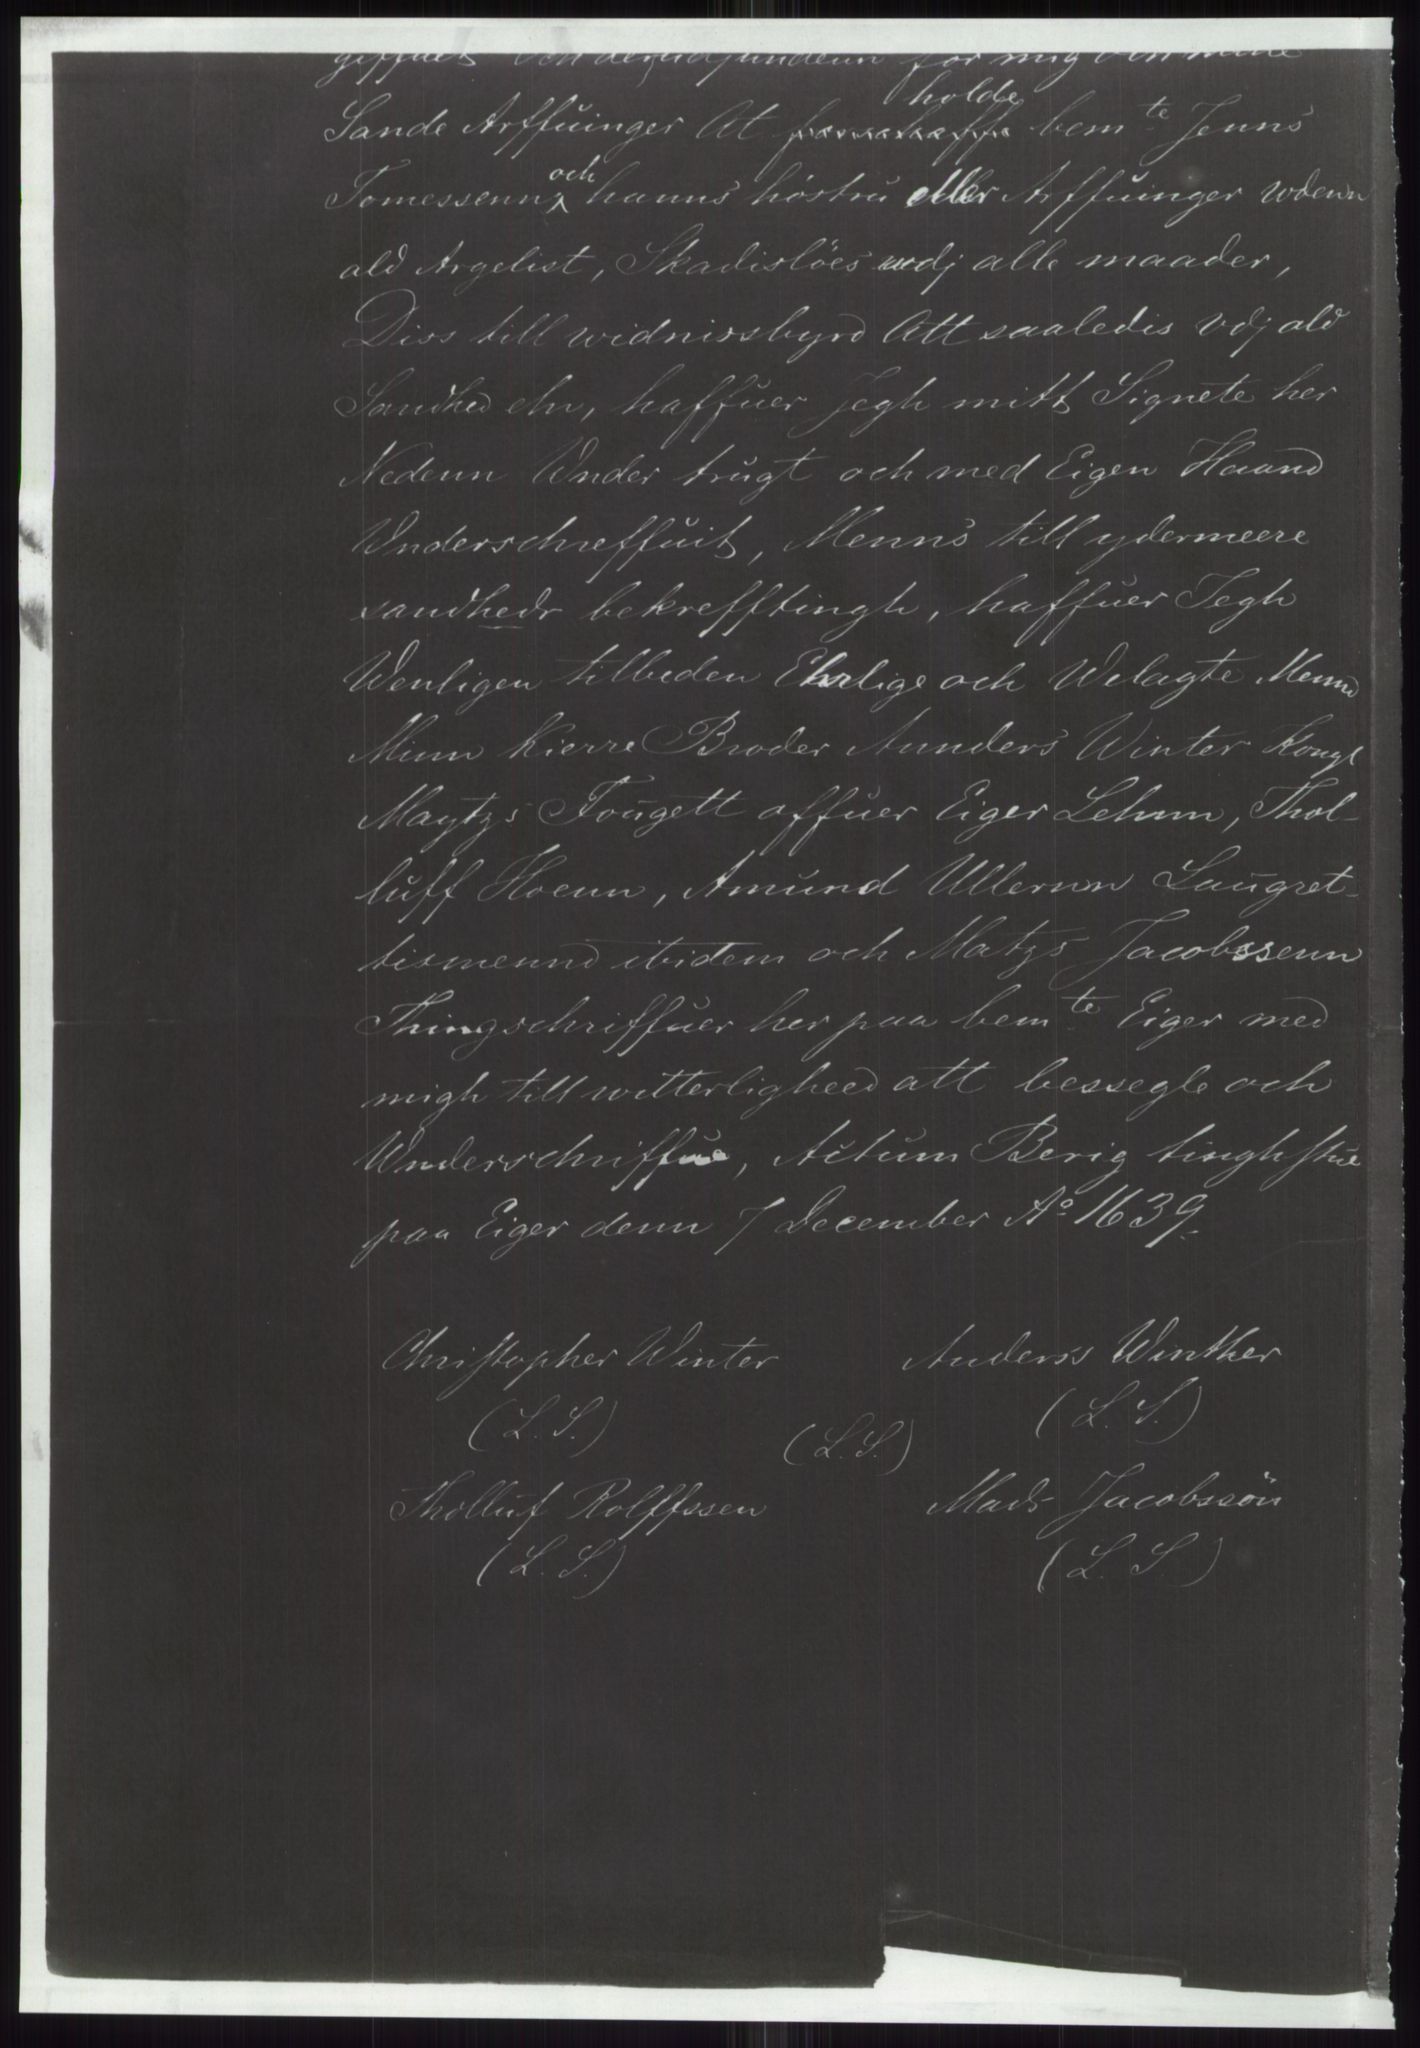 holde
Sande Arffuinger At bem te Jenns
Tomessenn, och hanns höstru eller Arffuinger wdenn
ald Argelist, Skadislöes udj alle maader,
Diss till widnissbyrd Att saaledis vdj ald
Sandhed ehr, haffuer jegh mitt Signete her
Nedenn Vnder trügt och med Eigen Haand
Vnderschreffuit, Menns till ydermeere
sandheds bekrefftingh, haffuer Jegh
Wenligen tilbeden Ehrlige och Welagte Mennd
Minn Kierre Broder Annders Winter Kongl
Maytzs Fougett offuer Eiger Lehnn, Thol-
luff Hoenn, Amund Ullernn Laugret-
tismennd ibidem och Matzs Jacobssenn
Thingschriffuer her paa bem te Eiger med
migh till witterligheed att bessegle och
Vnderschriffue, Actum Berig tinghstue
paa Eiger denn 7 December Ao 1639.
Christopher Winter Anderss Winther
(L. S.) (L. S.) (L. S.)
Thølluf Rolffssen Mads Jacobssön
(L. S.) (L. S.)